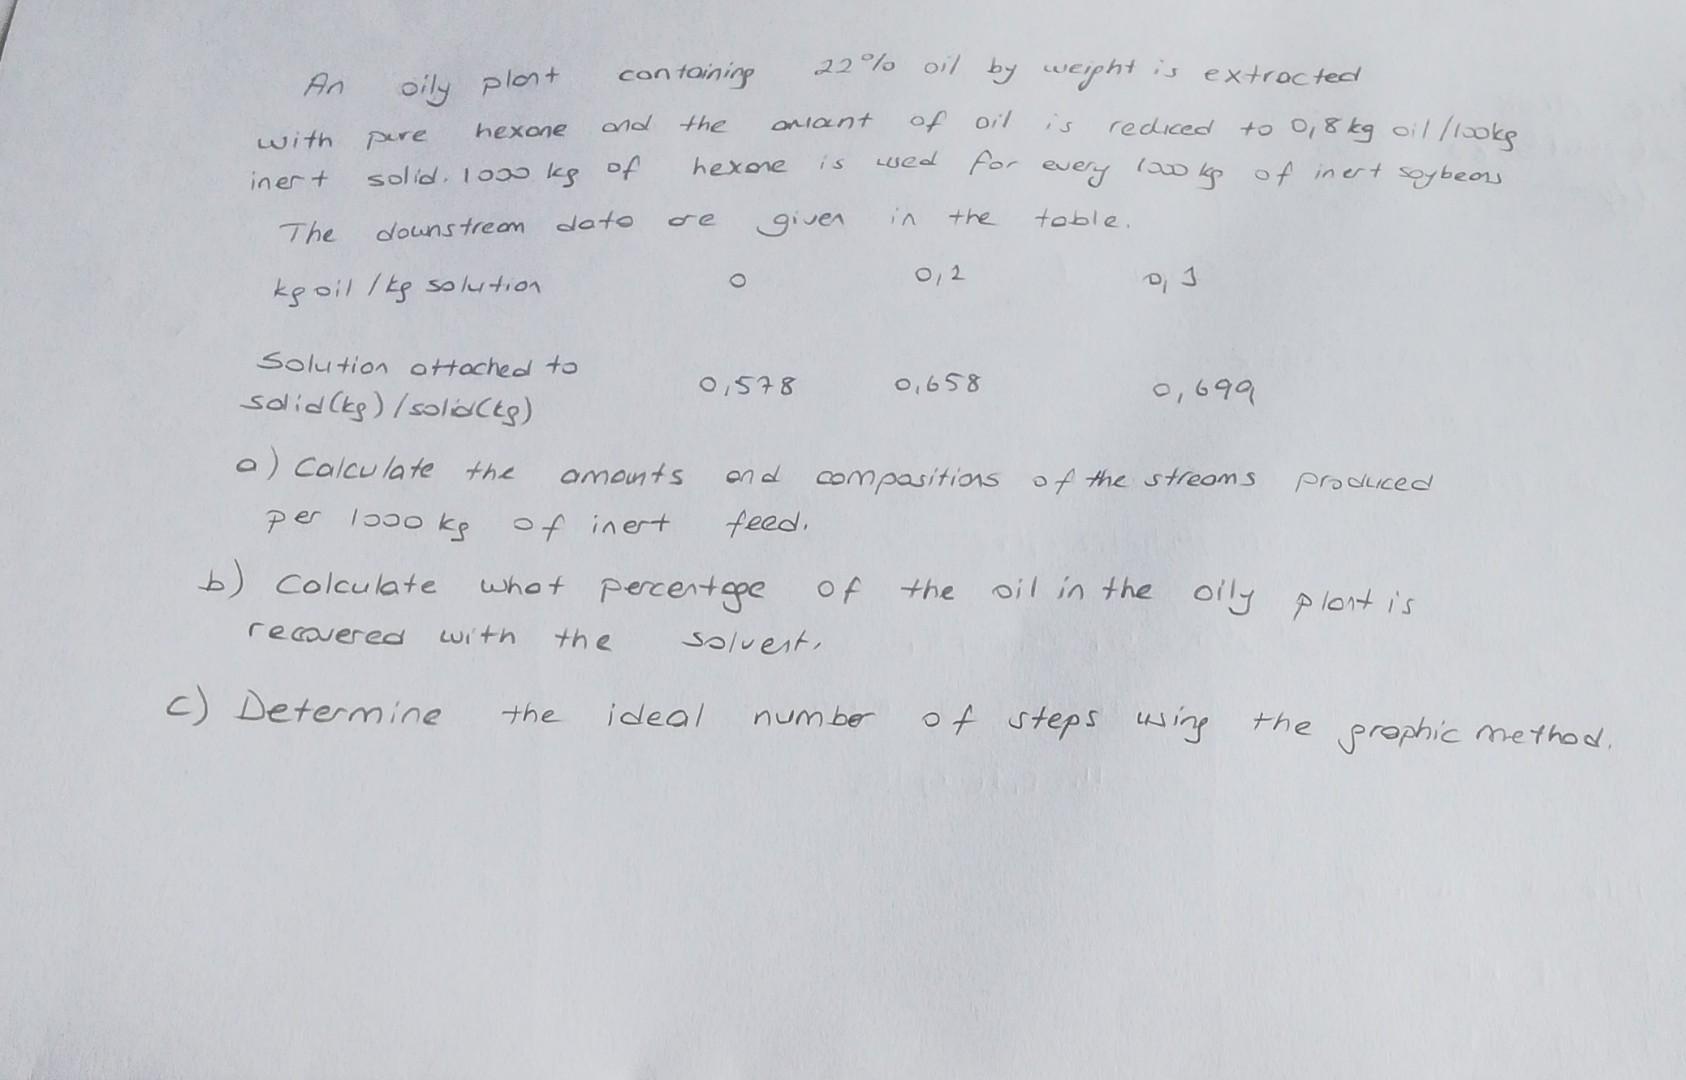 An oily plant containing 22% oil by weight is extracted
with pure hexane and the amount of oil is reduced to 0,8 kg oil /100kg
inert solid. 1000 kg of hexane is used for every 1000 kg of inert soybeans
The downstream data are given in the table.
kg oil / kg solution 0 0,2 0,3
Solution attached to
solid(kg) / solid(kg) 0,578 0,658 0,699
a) Calculate the amounts and compositions of the streams produced
per 1000 kg of inert feed.
b) Calculate what percentage of the oil in the oily plant is
recovered with the solvent.
c) Determine the ideal number of steps using the graphic method.